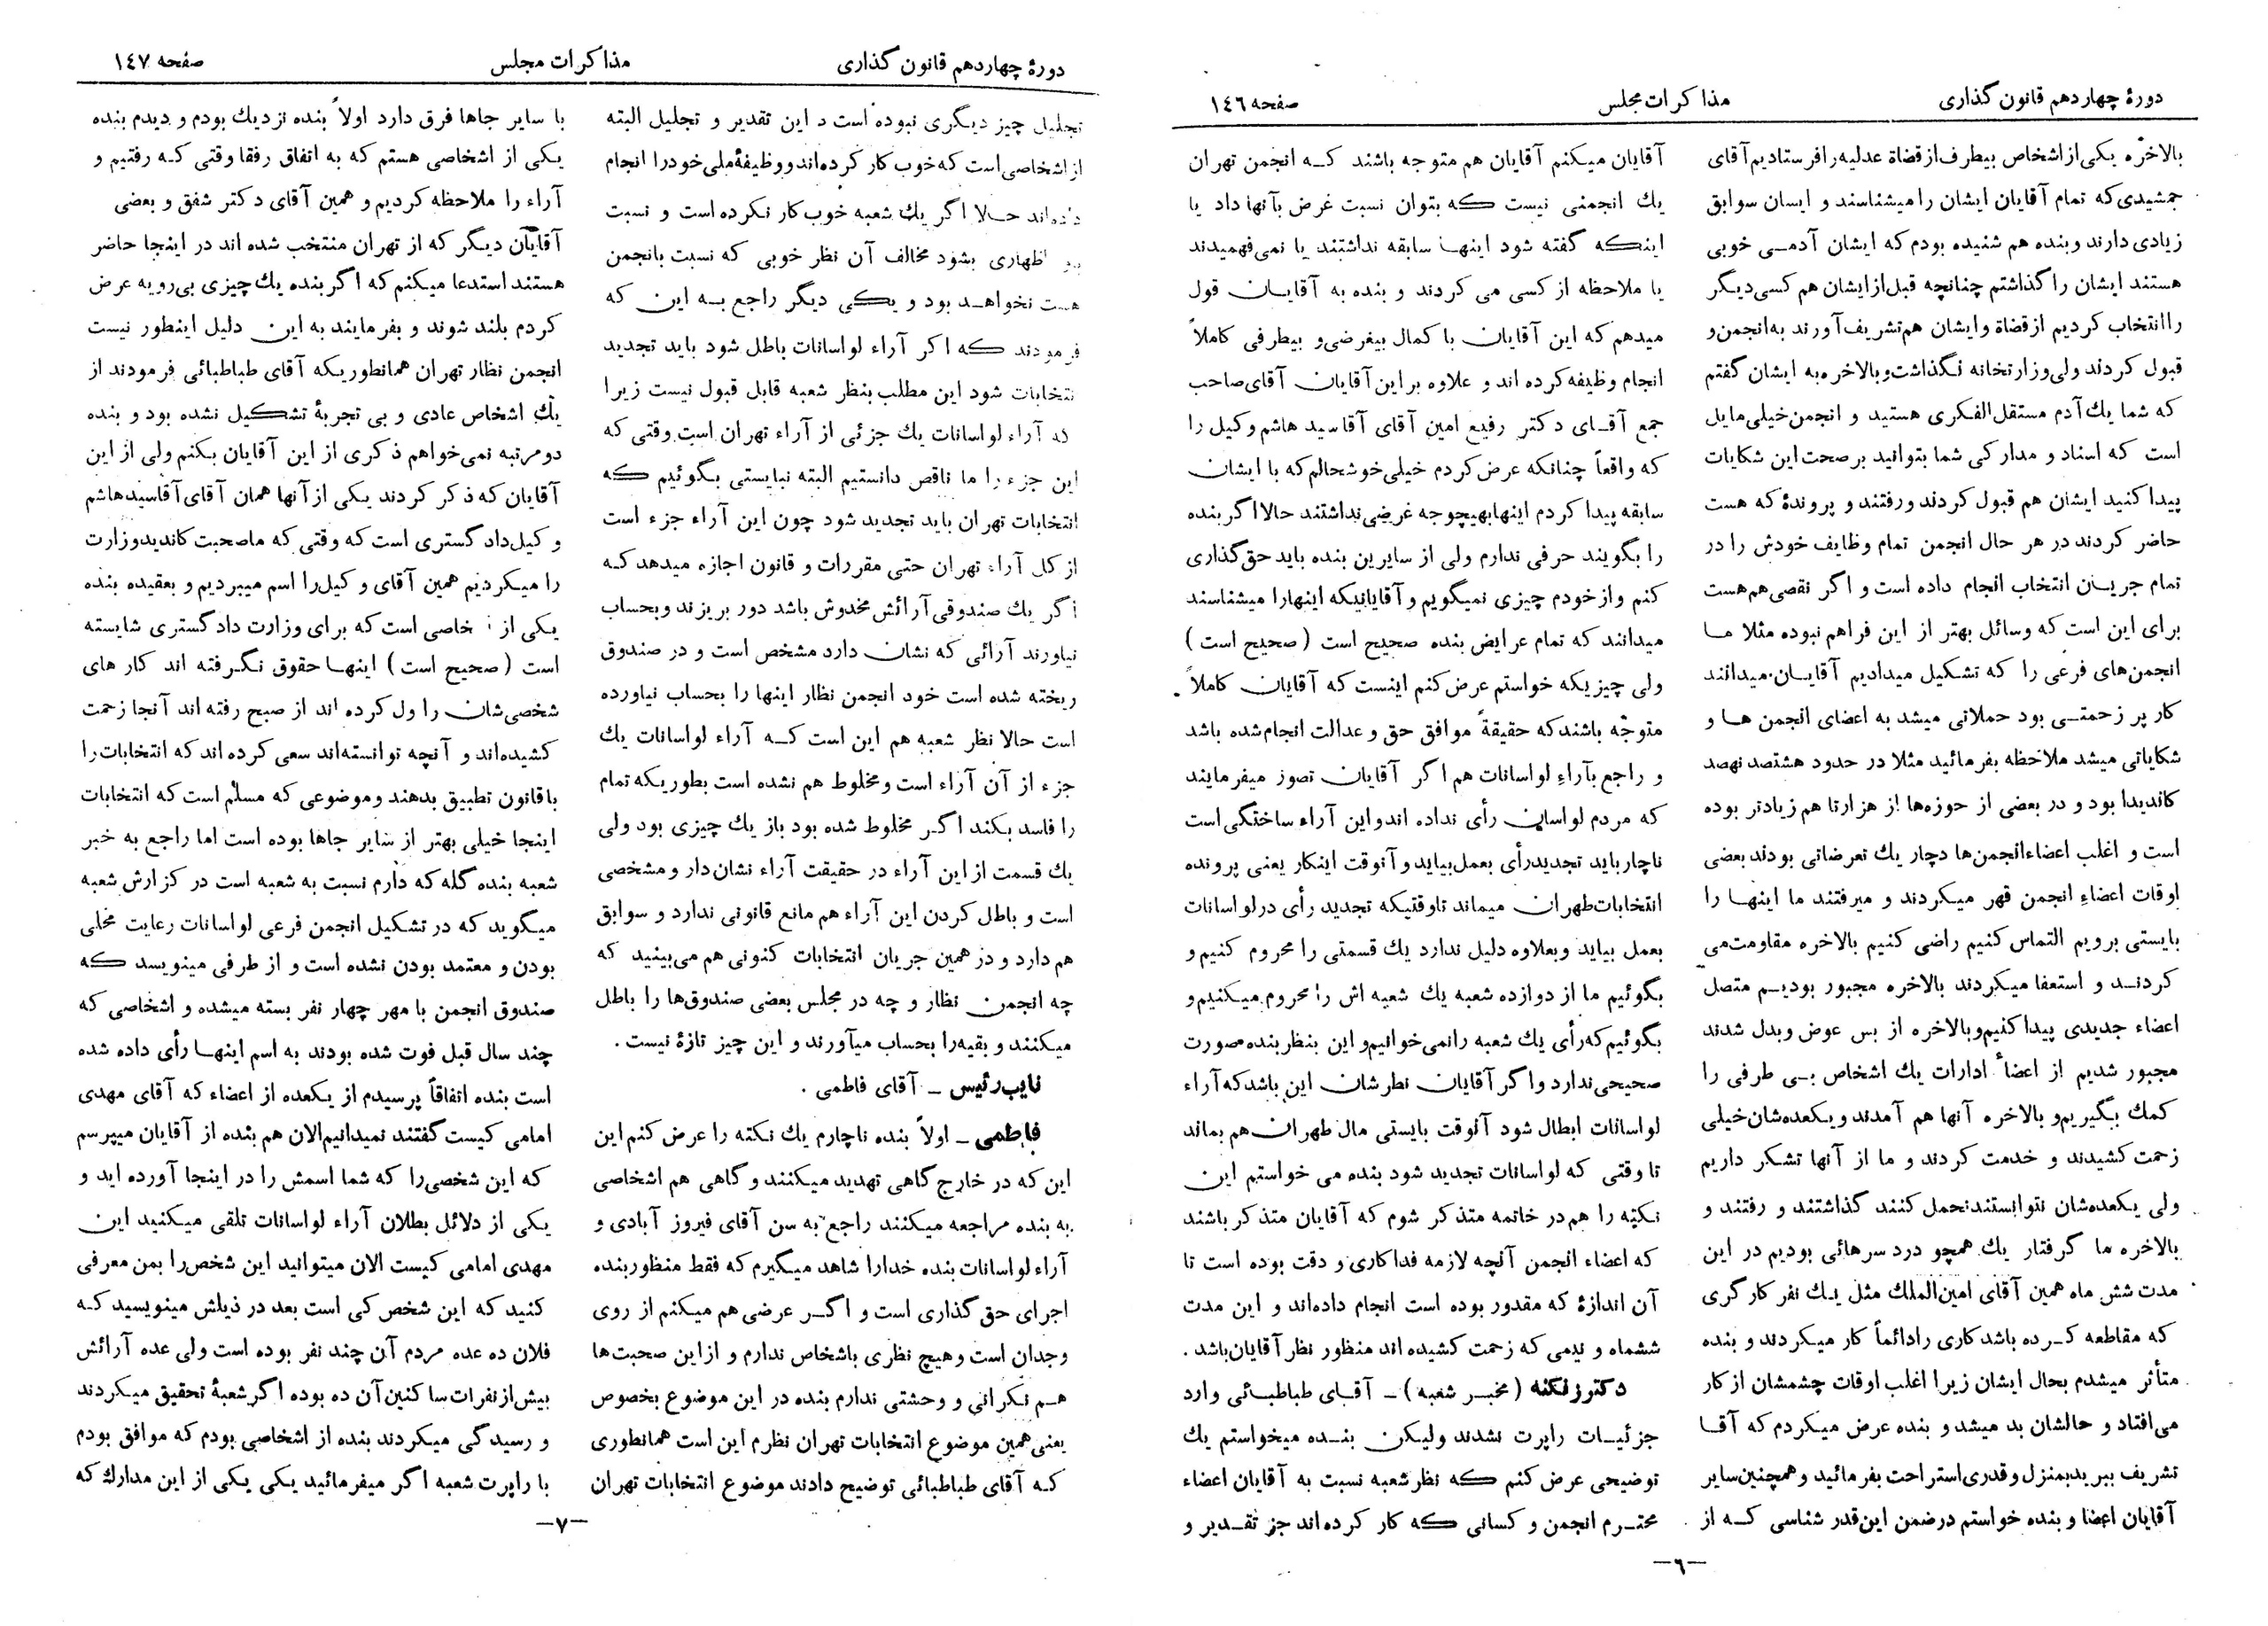 دورهٔ چهاردهم قانون گذاری
مذاکرات مجلس
صفحه ۱٤٦
بالاخره یکی از اشخاص بیطرف از قضاة عدلیه را فرستادیم آقای
جمشیدی که تمام آقایان ایشان را میشناسند و ایسان سوابق
زیادی دارند و بنده هم شنیده بودم که ایشان آدمی خوبی
هستند ایشان را گذاشتم چنانچه قبل از ایشان هم کسی دیگر
را انتخاب کردیم از قضاة و ایشان هم تشریف آورند به انجمن و
قبول کردند ولی وزارتخانه نگذاشت و بالاخره به ایشان گفتم
که شما یك آدم مستقل الفکری هستید و انجمن خیلی مایل
است که اسناد و مدارکی شما بتوانید بر صحت این شکایات
پیدا کنید ایشان هم قبول کردند و رفتند و پروندهٔ که هست
حاضر کردند در هر حال انجمن تمام وظایف خودش را در
تمام جریان انتخاب انجام داده است و اگر نقصی هم هست
برای این است که وسائل بهتر از این فراهم نبوده مثلا ما
انجمن‌های فرعی را که تشکیل میدادیم آقایان میدانند
کار پر زحمتی بود حملاتی میشد به اعضای انجمن ها و
شکایاتی میشد ملاحظه بفرمائید مثلا در حدود هشتصد نهصد
کاندیدا بود و در بعضی از حوزه‌ها از هزار تا هم زیادتر بوده
است و اغلب اعضاء انجمن‌ها دچار یك تعرضاتی بودند بعضی
اوقات اعضاء انجمن قهر میکردند و میرفتند ما اینها را
بایستی برویم التماس کنیم راضی کنیم بالاخره مقاومت می
کردند و استعفا میکردند بالاخره مجبور بودیم متصل
اعضاء جدیدی پیدا کنیم و بالاخره از بس عوض و بدل شدند
مجبور شدیم از اعضأ ادارات یك اشخاص بی طرفی را
کمك بگیریم و بالاخره آنها هم آمدند و یکعده‌شان خیلی
زحمت کشیدند و خدمت کردند و ما از آنها تشکر داریم
ولی یکعده‌شان نتوانستند تحمل کنند گذاشتند و رفتند و
بالاخره ما گرفتار یك همچو درد سرهائی بودیم در این
مدت شش ماه همین آقای امین‌الملك مثل یك نفر کارگری
که مقاطعه کرده باشد کاری را دائماً کار میکردند و بنده
متأثر میشدم بحال ایشان زیرا اغلب اوقات چشمشان از کار
می‌افتاد و حالشان بد میشد و بنده عرض میکردم که آقا
تشریف ببرید بمنزل و قدری استراحت بفرمائید و همچنین سایر
آقایان اعضا و بنده خواستم در ضمن این قدر شناسی که از
آقایان میکنم آقایان هم متوجه باشند که انجمن تهران
یك انجمنی نیست که بتوان نسبت غرض بآنها داد یا
اینکه گفته شود اینها سابقه نداشتند یا نمی‌فهمیدند
یا ملاحظه از کسی می کردند و بنده به آقایان قول
میدهم که این آقایان با کمال بیغرضی و بیطرفی کاملاً
انجام وظیفه کرده اند و علاوه بر این آقایان آقای صاحب
جمع آقای دکتر رفیع امین آقای آقا سید هاشم وکیل را
که واقعاً چنانکه عرض کردم خیلی خوشحالم که با ایشان
سابقه پیدا کردم اینها بهیچوجه غرضی نداشتند حالا اگر بنده
را بگویند حرفی ندارم ولی از سایرین بنده باید حق گذاری
کنم و از خودم چیزی نمیگویم و آقایانیکه اینها را میشناسند
میدانند که تمام عرایض بنده صحیح است (صحیح است)
ولی چیزیکه خواستم عرض کنم اینست که آقایان کاملاً
متوجه باشند که حقیقةً موافق حق و عدالت انجام شده باشد
و راجع بآراء لواسانات هم اگر آقایان تصور میفرمایند
که مردم لواسان رأی نداده اند و این آراء ساختگی است
ناچار باید تجدید رأی بعمل بیاید و آنوقت اینکار یعنی پرونده
انتخابات طهران میماند تا وقتیکه تجدید رأی در لواسانات
بعمل بیاید و بعلاوه دلیل ندارد یك قسمتی را محروم کنیم و
بگوئیم ما از دوازده شعبه یك شعبه اش را محروم میکنیم و
بگوئیم که رأی یك شعبه را نمی‌خوانیم و این بنظر بنده صورت
صحیحی ندارد و اگر آقایان نظرشان این باشد که آراء
لواسانات ابطال شود آنوقت بایستی مال طهران هم بماند
تا وقتی که لواسانات تجدید شود بنده می خواستم این
نکته را هم در خاتمه متذکر شوم که آقایان متذکر باشند
که اعضاء انجمن آنچه لازمه فداکاری و دقت بوده است تا
آن اندازهٔ که مقدور بوده است انجام داده‌اند و این مدت
ششماه و نیمی که زحمت کشیده اند منظور نظر آقایان باشد .
دکتر زنگنه (مخبر شعبه) ـ آقای طباطبائی وارد
جزئیات راپرت نشدند ولیکن بنده میخواستم یك
توضیحی عرض کنم که نظر شعبه نسبت به آقایان اعضاء
محترم انجمن و کسانی که کار کرده‌اند جز تقدیر و
ـ٦ـ
دورهٔ چهاردهم قانون گذاری
مذاکرات مجلس
صفحه ۱٤۷
تجلیل چیز دیگری نبوده است د این تقدیر و تجلیل البته
از اشخاصی است که خوب کار کرده‌اند و وظیفهٔ ملی خود را انجام
داده‌اند حالا اگر یك شعبه خوب کار نکرده است و نسبت
اظهاری بشود مخالف آن نظر خوبی که نسبت بانجمن
هست نخواهد بود و یکی دیگر راجع به این که
فرمودند که اگر آراء لواسانات باطل شود باید تجدید
انتخابات شود این مطلب بنظر شعبه قابل قبول نیست زیرا
که آراء لواسانات یك جزئی از آراء تهران است وقتی که
این جزء را ما ناقص دانستیم البته نبایستی بگوئیم که
انتخابات تهران باید تجدید شود چون این آراء جزء است
از کل آراء تهران حتی مقررات و قانون اجازه میدهد که
اگر یك صندوقی آرائش مخدوش باشد دور بریزند و بحساب
نیاورند آرائی که نشان دارد مشخص است و در صندوق
ریخته شده است خود انجمن نظار اینها را بحساب نیاورده
است حالا نظر شعبه هم این است که آراء لواسانات یك
جزء از آن آراء است و مخلوط هم نشده است بطوریکه تمام
را فاسد بکند اگر مخلوط شده بود باز یك چیزی بود ولی
یك قسمت از این آراء در حقیقت آراء نشان دار و مشخصی
است و باطل کردن این آراء هم مانع قانونی ندارد و سوابق
هم دارد و در همین جریان انتخابات کنونی هم می‌بینید که
چه انجمن نظار و چه در مجلس بعضی صندوق‌ها را باطل
میکنند و بقیه را بحساب میآورند و این چیز تازهٔ نیست .
نایب رئیس ـ آقای فاطمی .
فاطمی ـ اولاً بنده ناچارم یك نکته را عرض کنم این
این که در خارج گاهی تهدید میکنند و گاهی هم اشخاصی
به بنده مراجعه میکنند راجع به سن آقای فیروز آبادی و
آراء لواسانات بنده خدا را شاهد میگیرم که فقط منظور بنده
اجرای حق گذاری است و اگر عرضی هم میکنم از روی
وجدان است و هیچ نظری باشخاص ندارم و از این صحبت‌ها
هم نگرانی و وحشتی ندارم بنده در این موضوع بخصوص
یعنی همین موضوع انتخابات تهران نظرم این است همانطوری
که آقای طباطبائی توضیح دادند موضوع انتخابات تهران
با سایر جاها فرق دارد اولاً بنده نزدیك بودم و دیدم بنده
یکی از اشخاصی هستم که به اتفاق رفقا وقتی که رفتیم و
آراء را ملاحظه کردیم و همین آقای دکتر شفق و بعضی
آقایان دیگر که از تهران منتخب شده اند در اینجا حاضر
هستند استدعا میکنم که اگر بنده یك چیزی بی‌رویه عرض
کردم بلند شوند و بفرمایند به این دلیل اینطور نیست
انجمن نظار تهران همانطوریکه آقای طباطبائی فرمودند از
یك اشخاص عادی و بی تجربهٔ تشکیل نشده بود و بنده
دو مرتبه نمی‌خواهم ذکری از این آقایان بکنم ولی از این
آقایان که ذکر کردند یکی از آنها همان آقای آقا سید هاشم
وکیل دادگستری است که وقتی که ما صحبت کاندید وزارت
را میکردیم همین آقای وکیل را اسم میبردیم و بعقیده بنده
یکی از اشخاصی است که برای وزارت دادگستری شایسته
است (صحیح است) اینها حقوق نگرفته اند کار های
شخصی‌شان را ول کرده اند از صبح رفته اند آنجا زحمت
کشیده‌اند و آنچه توانسته‌اند سعی کرده اند که انتخابات را
با قانون تطبیق بدهند و موضوعی که مسلم است که انتخابات
اینجا خیلی بهتر از سایر جاها بوده است اما راجع به خبر
شعبه بنده گله که دارم نسبت به شعبه است در گزارش شعبه
میگوید که در تشکیل انجمن فرعی لواسانات رعایت محلی
بودن و معتمد بودن نشده است و از طرفی مینویسد که
صندوق انجمن با مهر چهار نفر بسته میشده و اشخاصی که
چند سال قبل فوت شده بودند به اسم اینها رأی داده شده
است بنده اتفاقاً پرسیدم از یکعده از اعضاء که آقای مهدی
امامی کیست گفتند نمیدانیم الان هم بنده از آقایان میپرسم
که این شخصی را که شما اسمش را در اینجا آورده اید و
یکی از دلائل بطلان آراء لواسانات تلقی میکنید این
مهدی امامی کیست الان میتوانید این شخص را بمن معرفی
کنید که این شخص کی است بعد در ذیلش مینویسید که
فلان ده عده مردم آن چند نفر بوده است ولی عده آرائش
بیش از نفرات ساکنین آن ده بوده اگر شعبهٔ تحقیق میکردند
و رسیدگی میکردند بنده از اشخاصی بودم که موافق بودم
با راپرت شعبه اگر میفرمائید یکی یکی از این مدارك که
ـ۷ـ